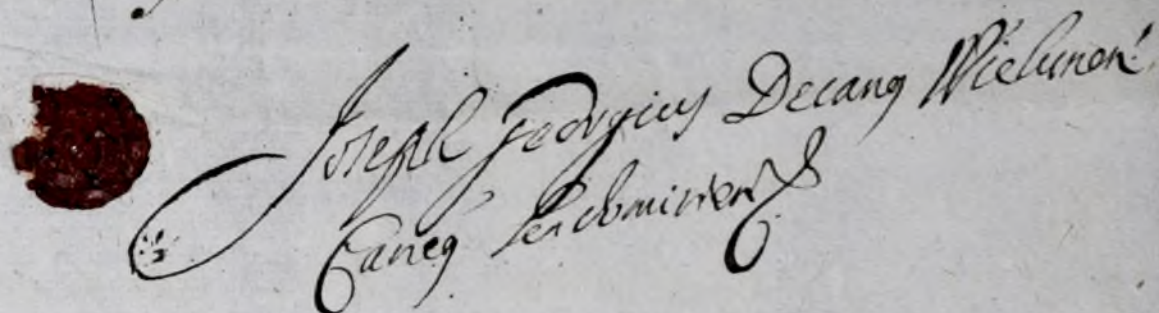 Joseph Georgius Decanꝰ Wielunen:
Canꝰ Sendomirien